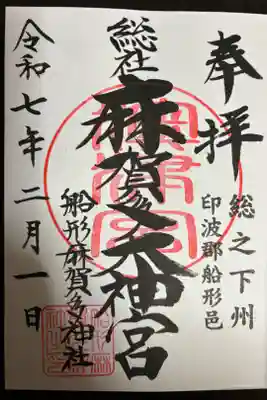 奉拝
総之下州
印波郡船形邑
総社
麻賀多大神宮
船形麻賀多神社
令和七年二月一日